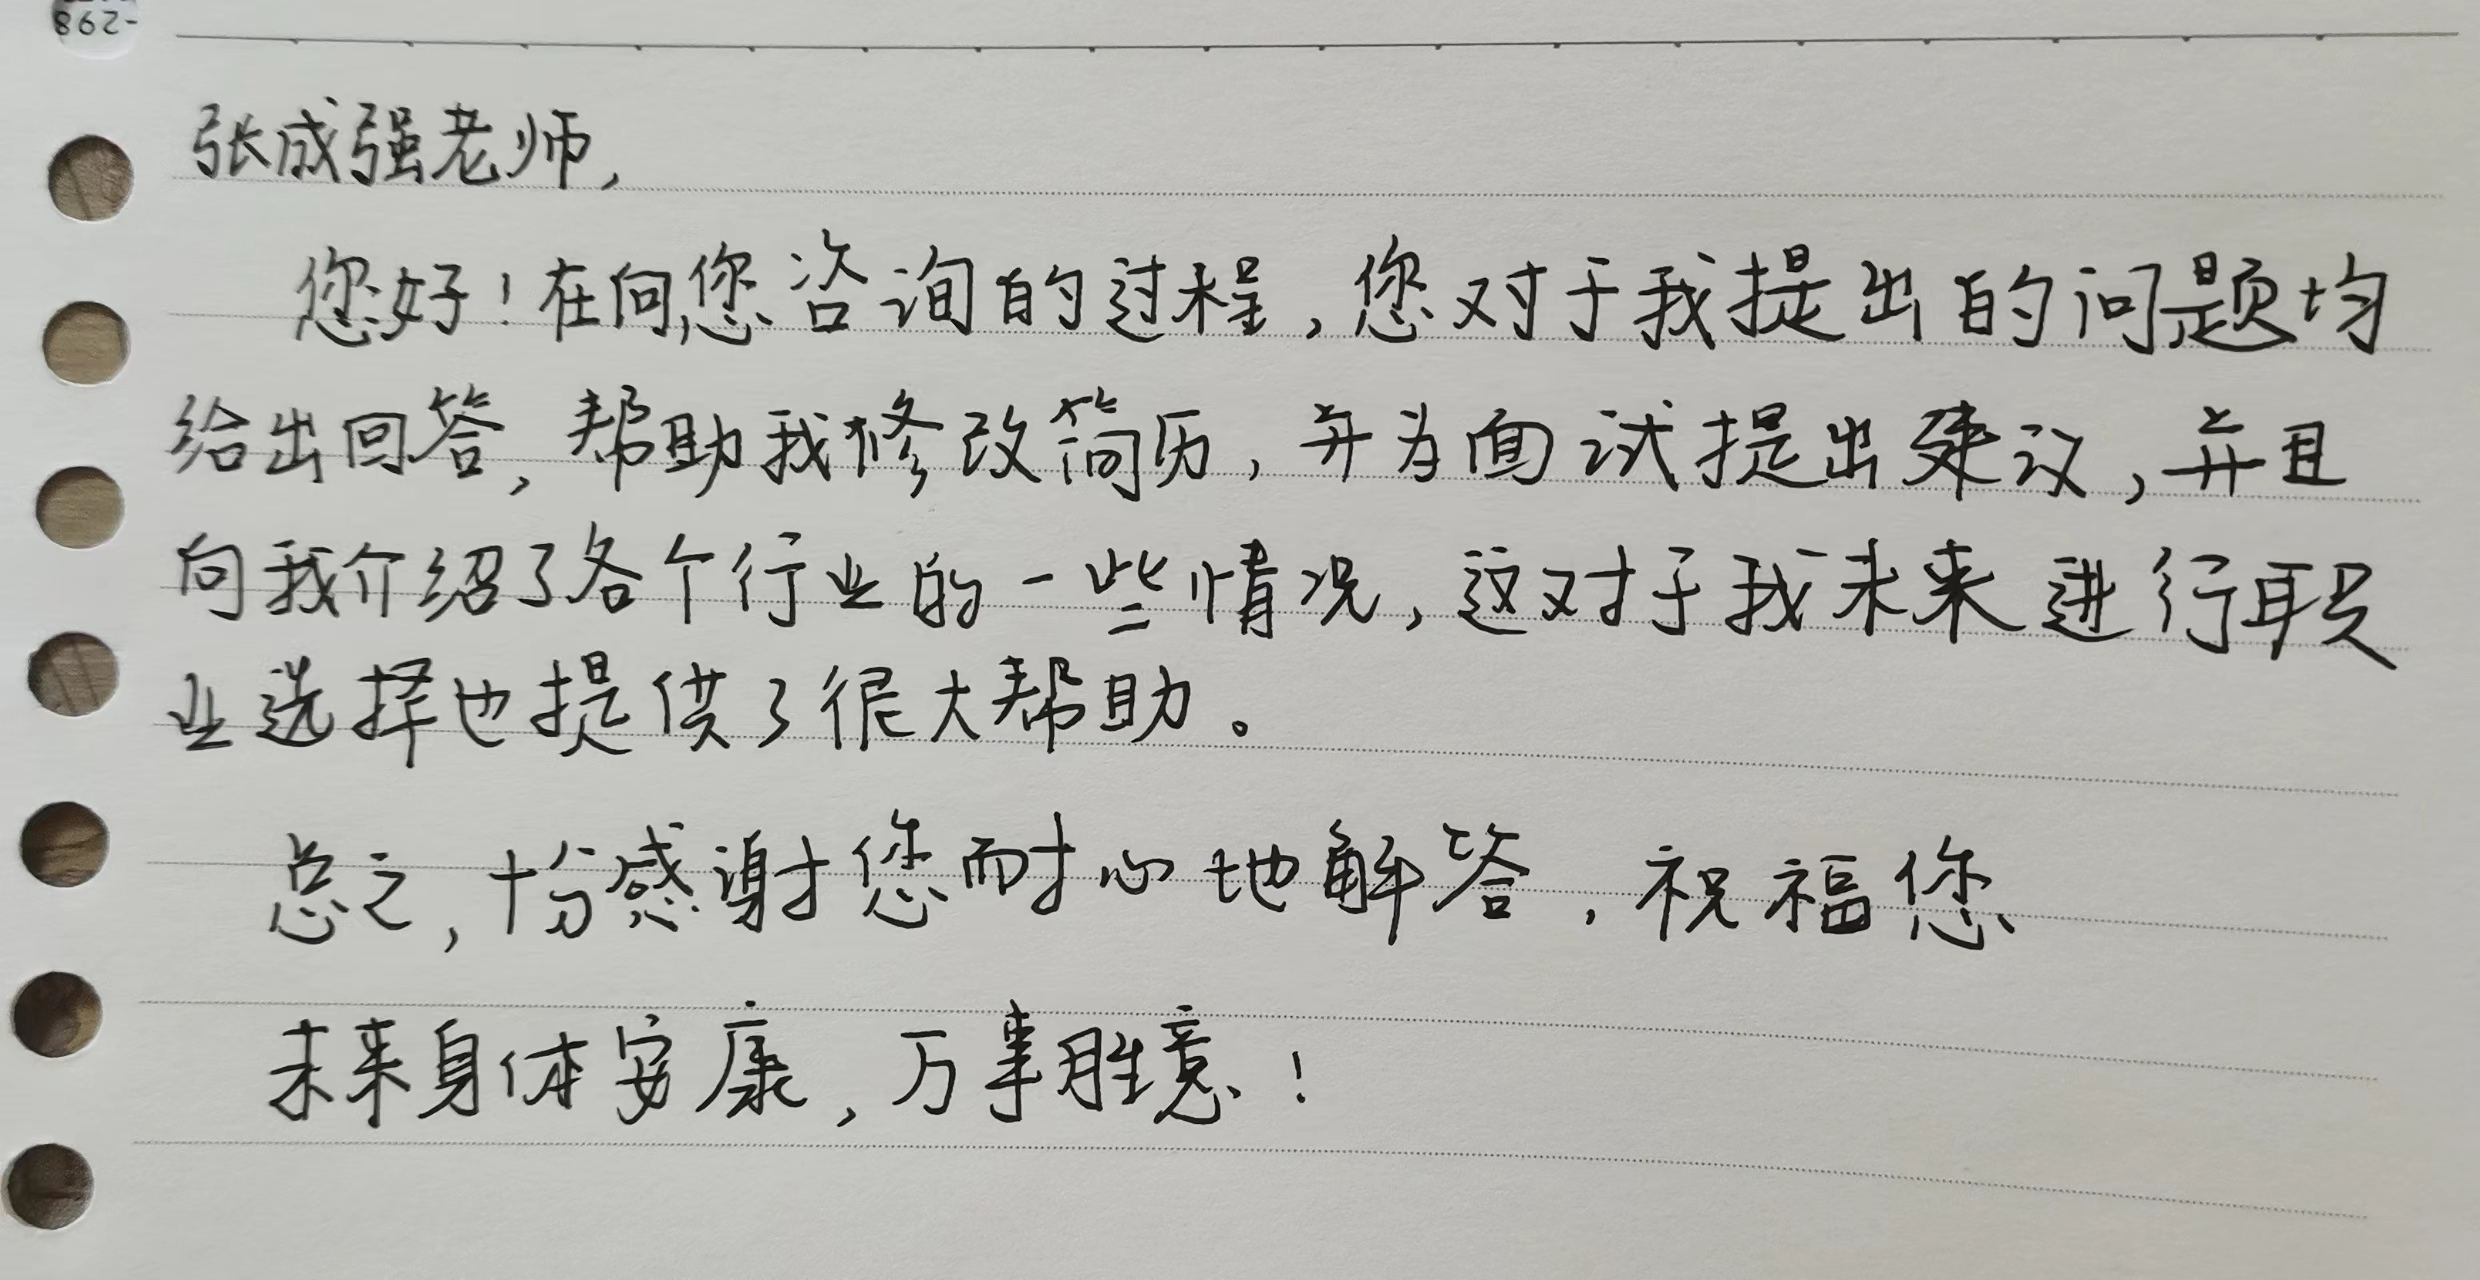 -298
张成强老师,
您好!在向您咨询的过程,您对于我提出的问题均
给出回答,帮助我修改简历,并为面试提出建议,并且
向我介绍了各个行业的一些情况,这对于我未来进行职
业选择也提供了很大帮助。
总之,十分感谢您耐心地解答,祝福您
未来身体安康,万事胜意!